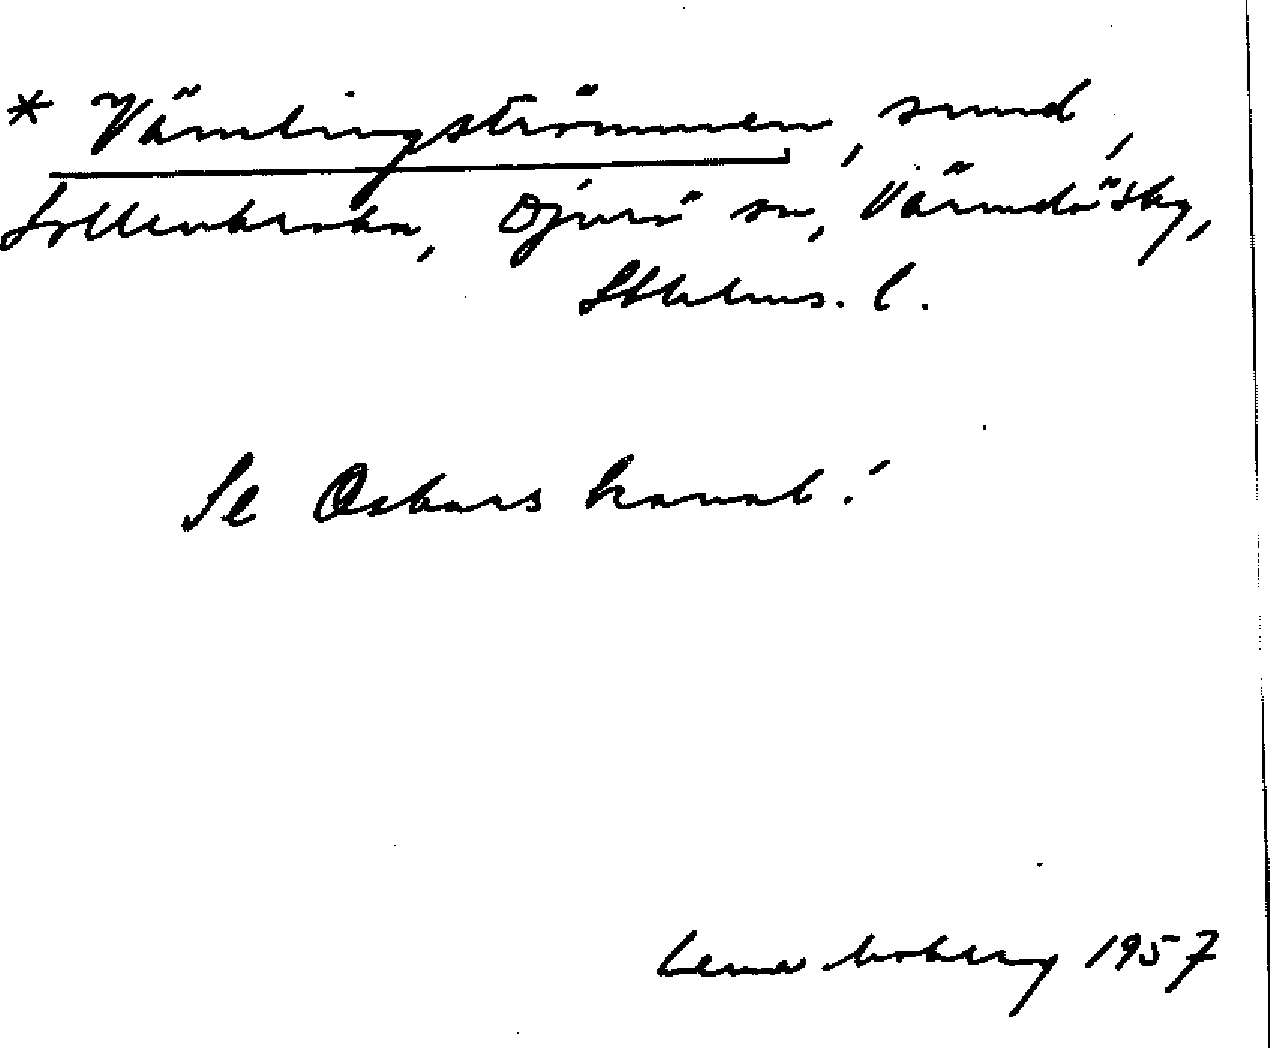 * Vämlingströmmen, sund,
Sollenkroka, Djurö sn, Värmdö skg,
Sthlms. l.
Se Oskars kanal!
Lena Moberg 1957